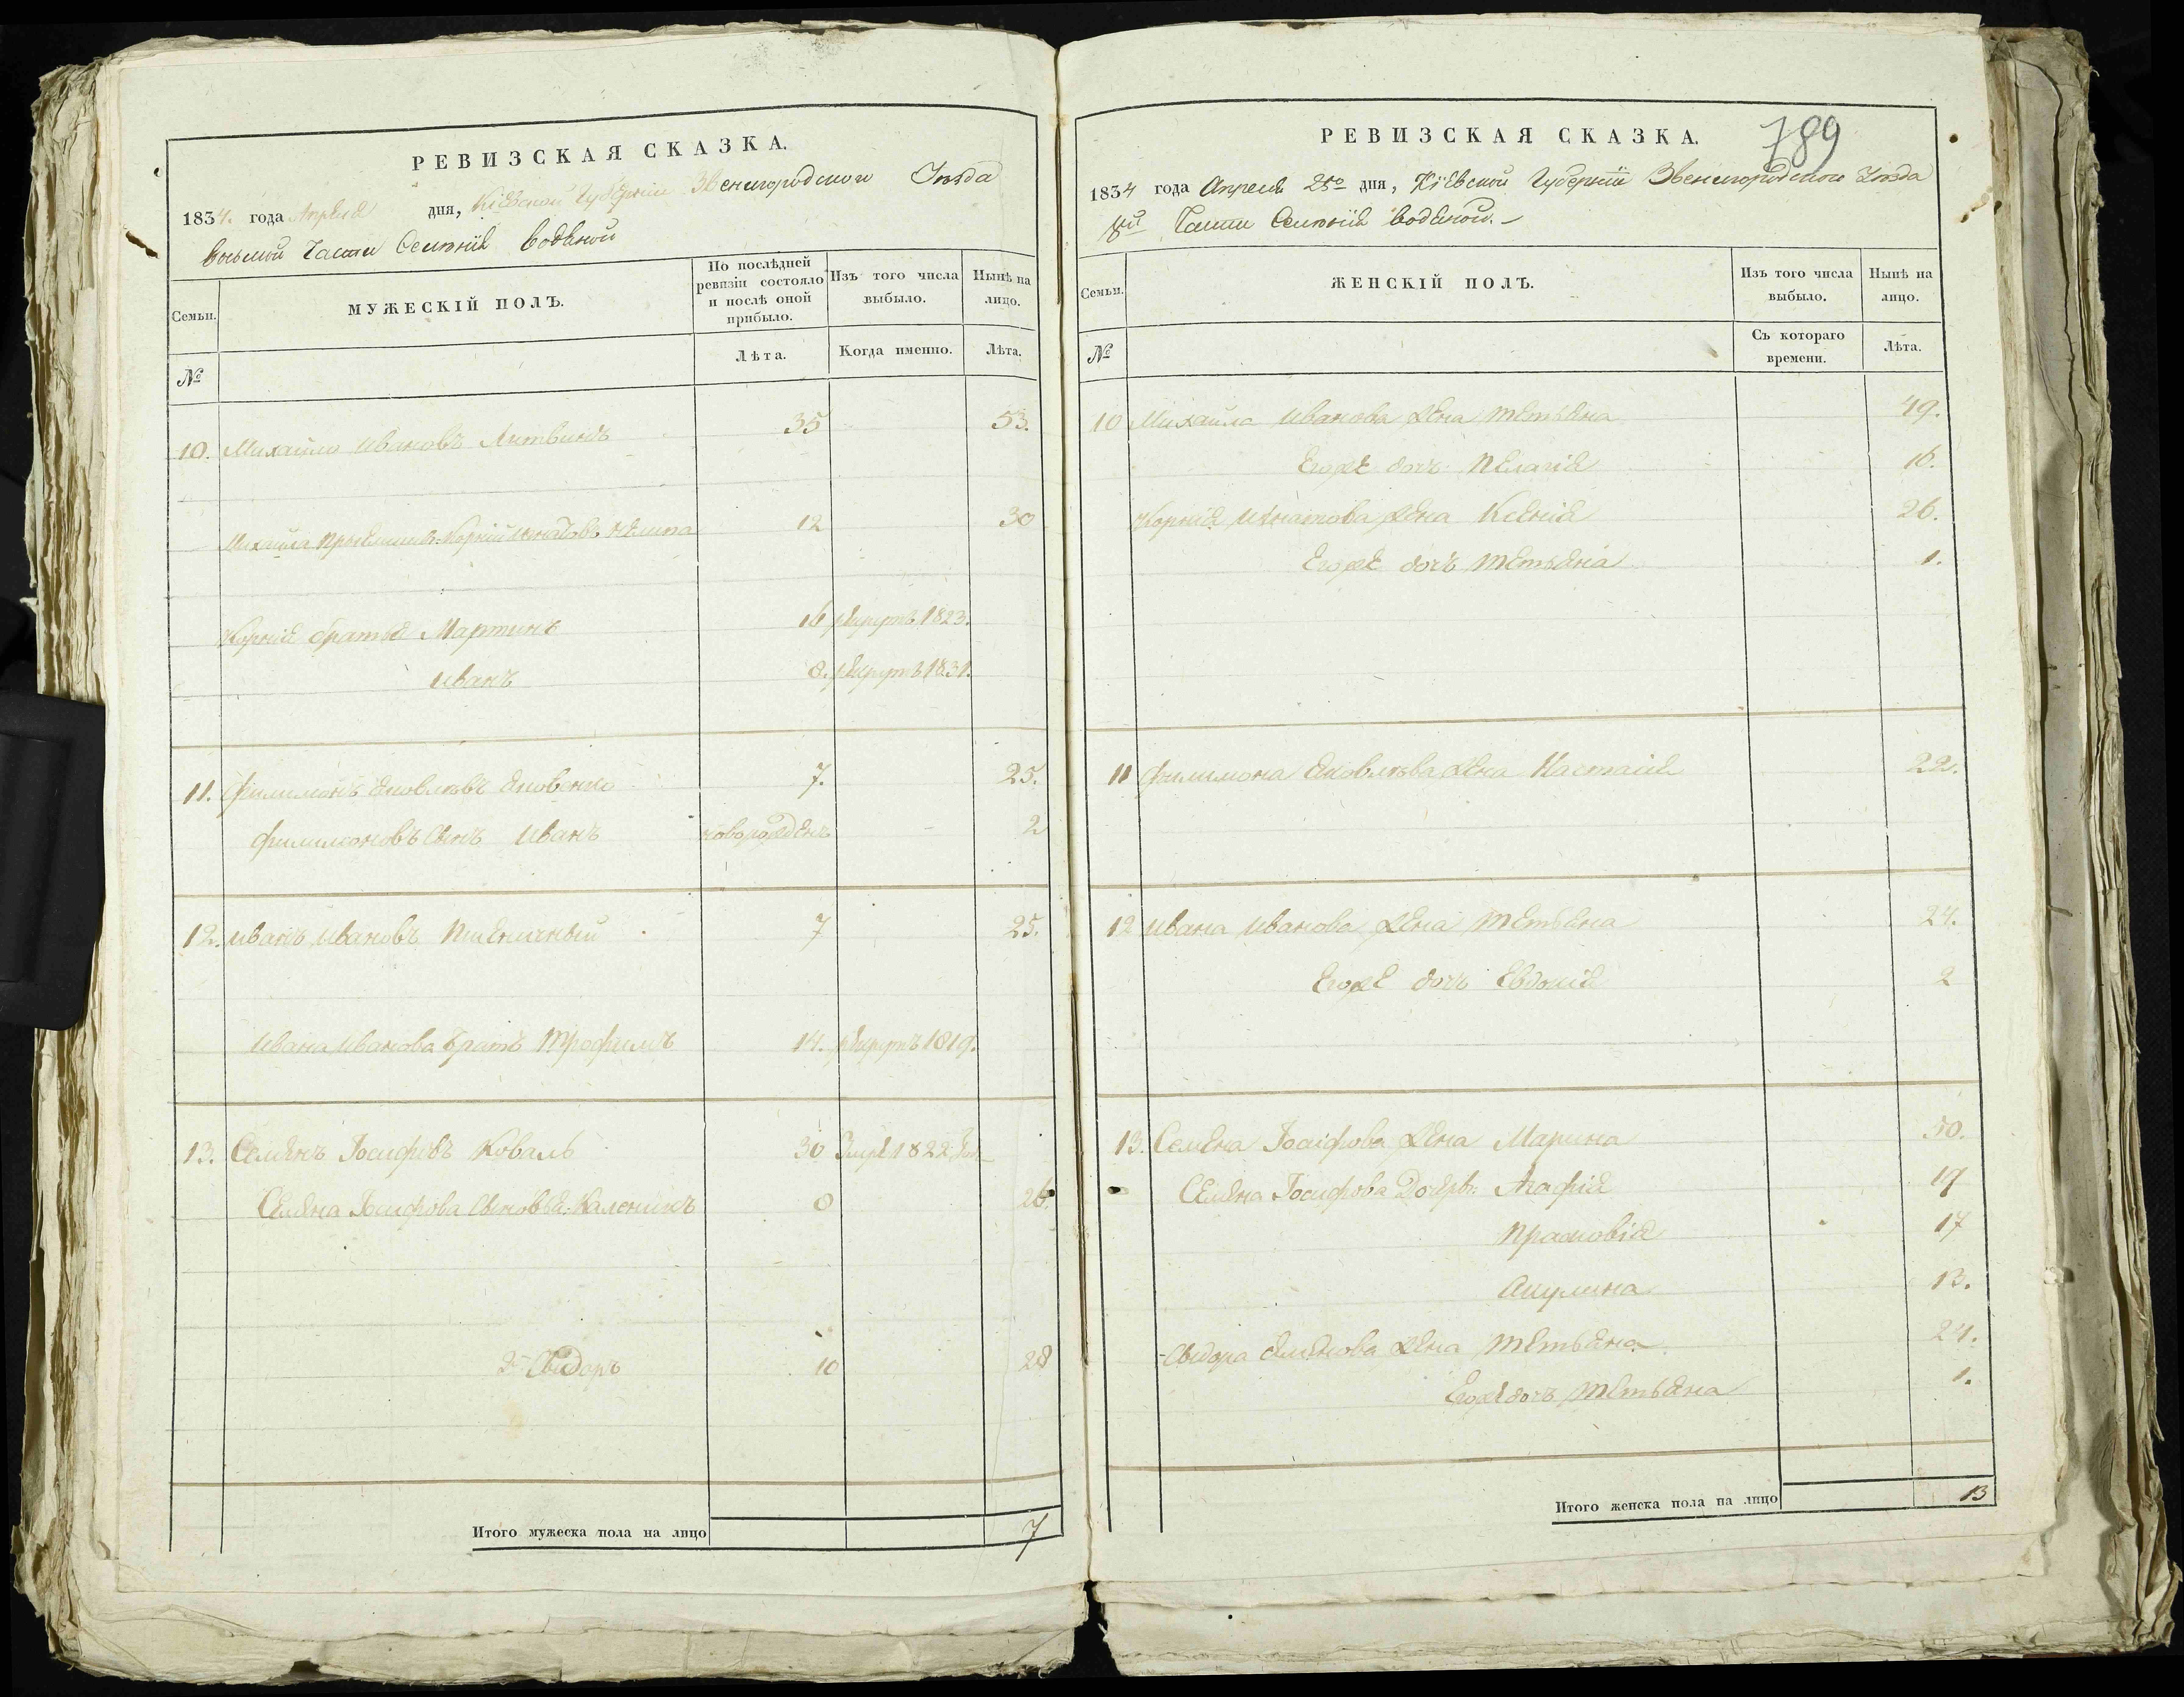 РЕВИЗСКАЯ СКАЗКА.
1834. года Апреля дня, Кіевской Губерніи Звенигородского Уезда
восьмой Части Селенія Водяной
Семьи.
МУЖЕСКІЙ ПОЛЪ.
По послѣдней ревизіи состояло и послѣ оной прибыло.
Изъ того числа выбыло.
Нынѣ на лицо.
№
Лѣта.
Когда именно.
Лѣта.
10. Михайло Ивановъ Литвинъ 35 53.
Михайла Корній Игнатовъ 12 30
Корнія братья Мартинъ 16 рекрутъ 1823.
Иванъ 8. рекрутъ 1831.
11. Филимонъ Яковлевъ Яковенко 7. 25.
Филимоновъ Сынъ Иванъ новорожденъ 2
12. Иванъ Ивановъ Пшеничный 7 25.
Ивана Иванова братъ Трофимъ 14. рекрутъ 1819.
13. Семенъ Іосифовъ Коваль 30 1822
Семена Іосифова Сыновья: Каленикъ 8 26.
2й Свидоръ 10 28
Итого мужеска пола на лицо 7
РЕВИЗСКАЯ СКАЗКА.
789
1834 года Апреля 25го дня, Кіевской Губерніи Звенигородского Уезда
8й Части Селенія Водяной.
Семьи.
ЖЕНСКІЙ ПОЛЪ.
Изъ того числа выбыло.
Нынѣ на лицо.
№
Съ котораго времени.
Лѣта.
10 Михайла Иванова жена Тетьяна 49.
Егоже дочь Пелагія 16.
Корнія Игнатова жена Ксенія 26.
Егоже дочь Тетьяна 1.
11 Филимона Яковлева жена Настасія 22.
12 Ивана Иванова жена Тетьяна 24.
Егоже дочь Евдокія 2
13. Семена Іосифова жена Марина 50.
Семена Іосифова Дочерь: Агафія 19
Прасковія 17
Акулина 13.
Свидора Семенова жена Тетьяна 24.
Егоже дочь Тетьяна 1.
Итого женска пола на лицо 13